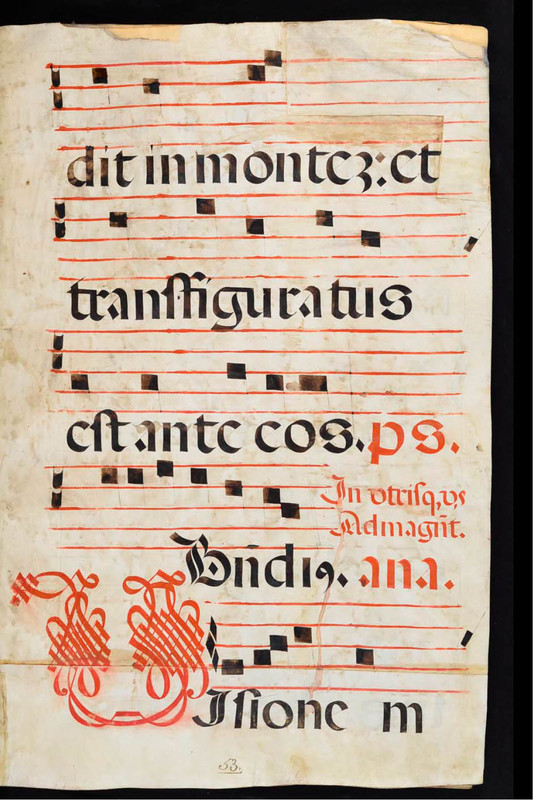 dit in monteʒ: et
transfiguratus
est ante eos. ps.
In vtrisq, vs
Ad magnt̃.
Bñdi9. ana.
Visione m
53.